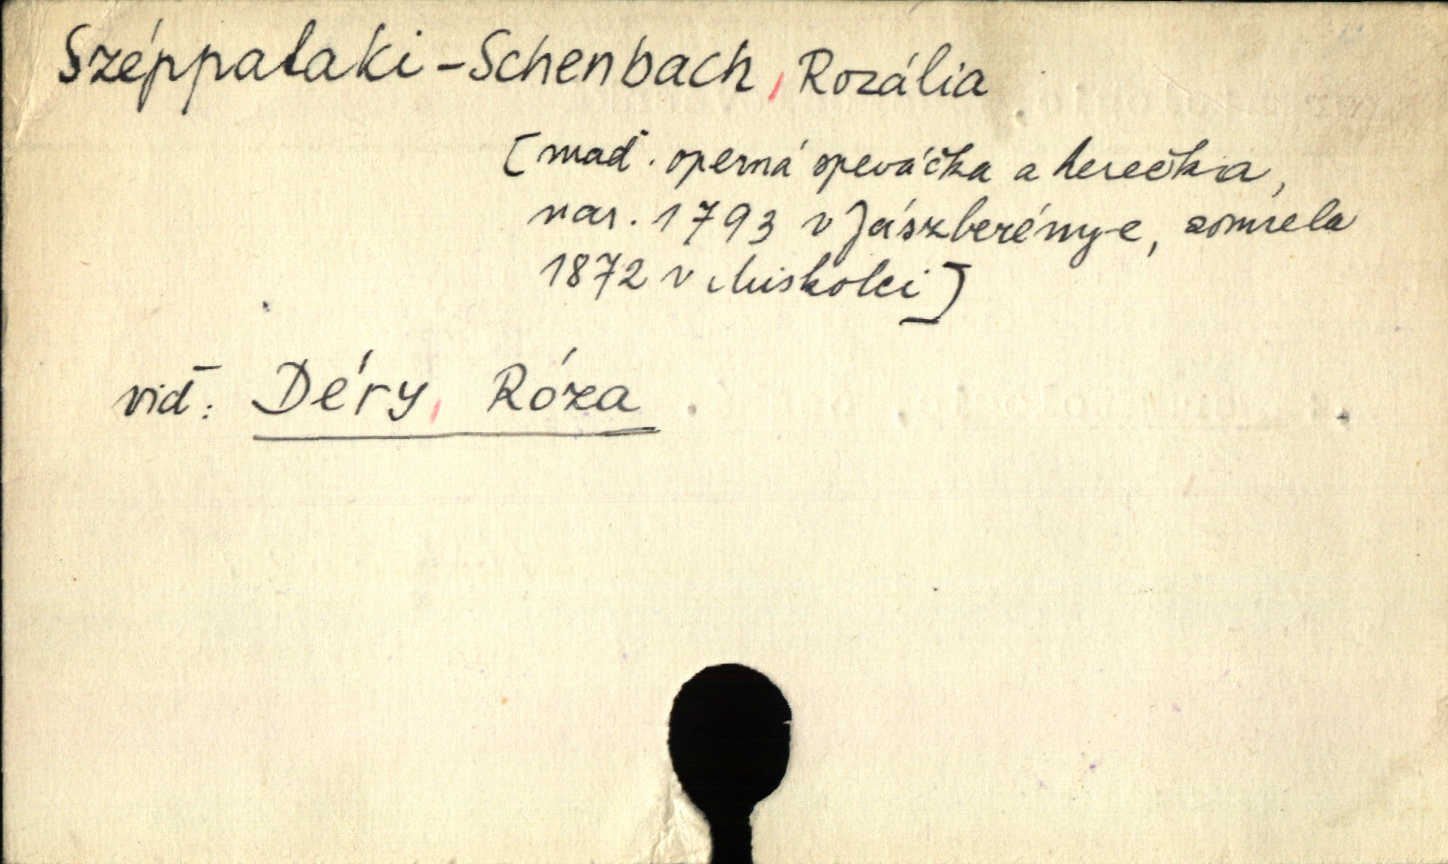 Széppataki-Schenbach, Rozália
[maď. operná speváčka a herečka,
nar. 1793 v Jászberénye, zomrela
1872 v Miskolci]
viď: Déry, Róza.